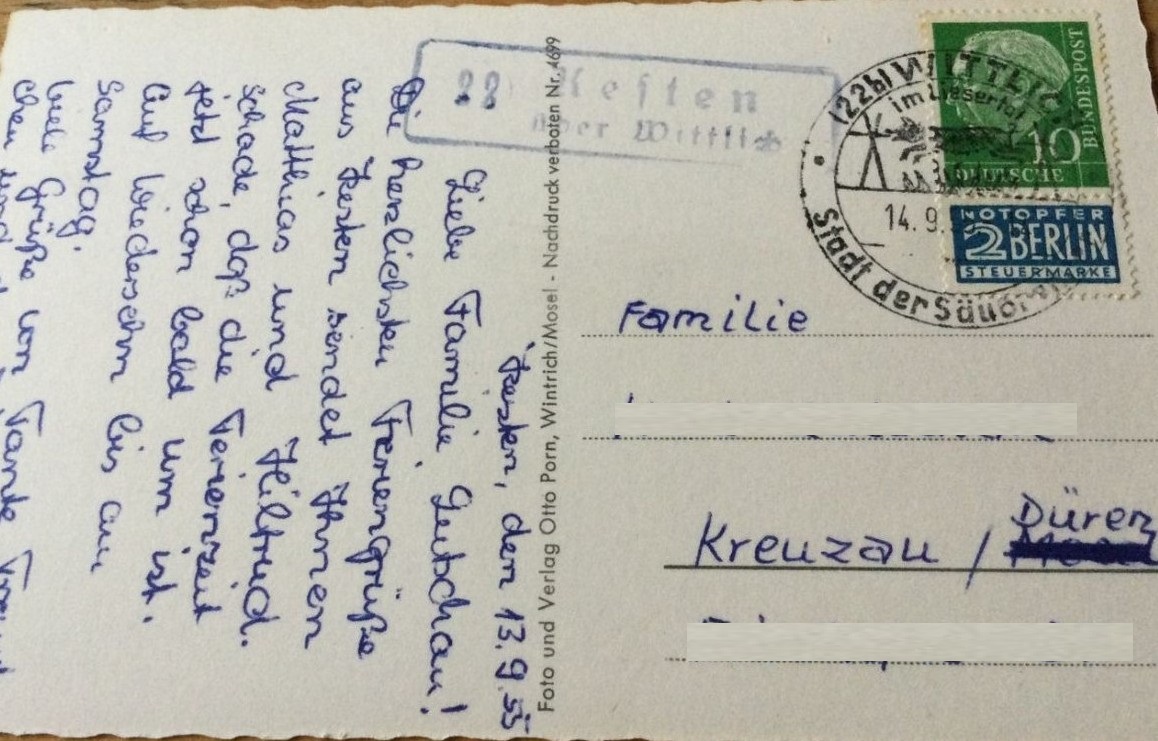 Kesten, den 13.9.55
Liebe Familie
Die herzlichsten Feriengrüße
aus Kesten sendet Ihnen
Matthias und Hiltrud.
Schade, daß die Ferienzeit
jetzt schon bald um ist.
Auf Wiedersehn bis am
Samstag.
Viele Grüße von Tante
Foto und Verlag Otto Porn, Wintrich/Mosel - Nachdruck verboten Nr. 4699
22b Kesten
über Wittlich
(22b) WITTLICH
im Liesertal
14.9.
Stadt der Säubr
10
DEUTSCHE
BUNDESPOST
NOTOPFER
2 BERLIN
STEUERMARKE
Familie
Kreuzau / Düren